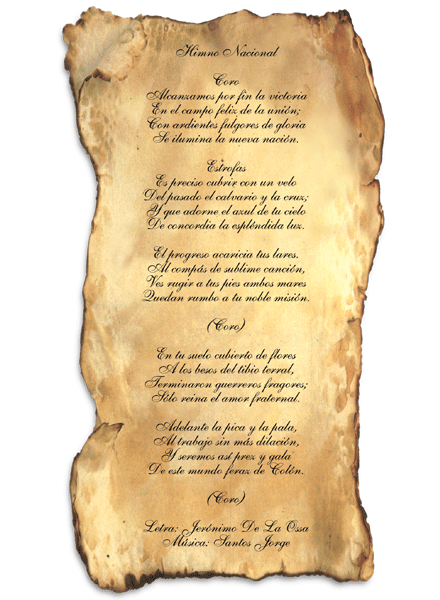 Himno Nacional
Coro
Alcanzamos por fin la victoria
En el campo feliz de la unión;
Con ardientes fulgores de gloria
Se ilumina la nueva nación.
Estrofas
Es preciso cubrir con un velo
Del pasado el calvario y la cruz;
Y que adorne el azul de tu cielo
De concordia la espléndida luz.
El progreso acaricia tus lares.
Al compás de sublime canción,
Ves rugir a tus pies ambos mares
Quedan rumbo a tu noble misión.
(Coro)
En tu suelo cubierto de flores
A los besos del tibio terral,
Terminaron guerreros fragores;
Sólo reina el amor fraternal.
Adelante la pica y la pala,
Al trabajo sin más dilación,
Y seremos así prez y gala
De este mundo feraz de Colón.
(Coro)
Letra: Jerónimo De La Ossa
Música: Santos Jorge